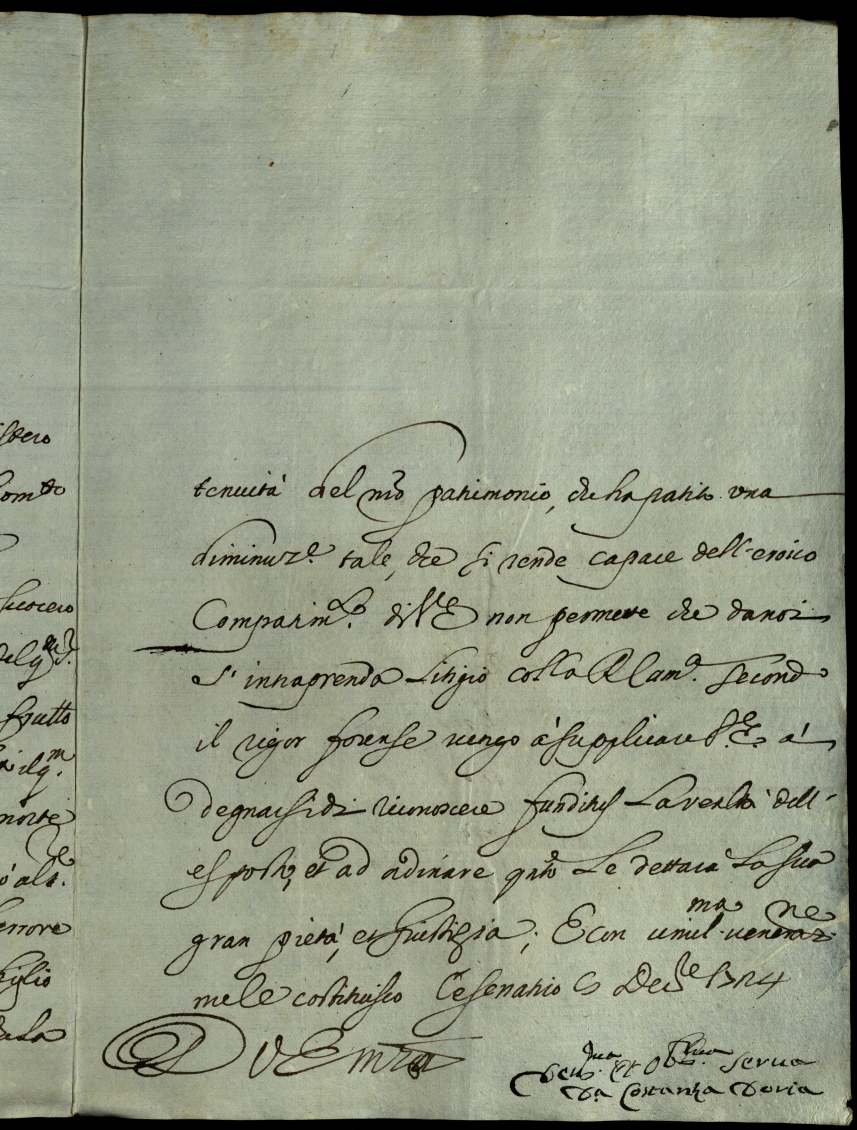 stero
Com.to
Suocero
del q.m S.r
frutto
il q.m
morte
ò alt.re
errore
figlio
della
tenuità del mio patimonio, che ha patito una
diminuz.e tale, che si rende capace dell'eroico
Compatim.to di V.E. non permette che da noi
s'intraprenda Litigio colla R. Cam.a secondo
il rigor forense vengo à supplicare V.E. à
degnarsi di riconoscere funditus La verità dell'
esposto, et ad ordinare q.nto Le dettarà La sua
gran pietà, et Giustizia; E con umil.ma veneraz.ne
mele costituisco Cesenatico Dec.re 1724
D V E mza
Dev.ma et Obb.ma serva
D.a Costanza Doria